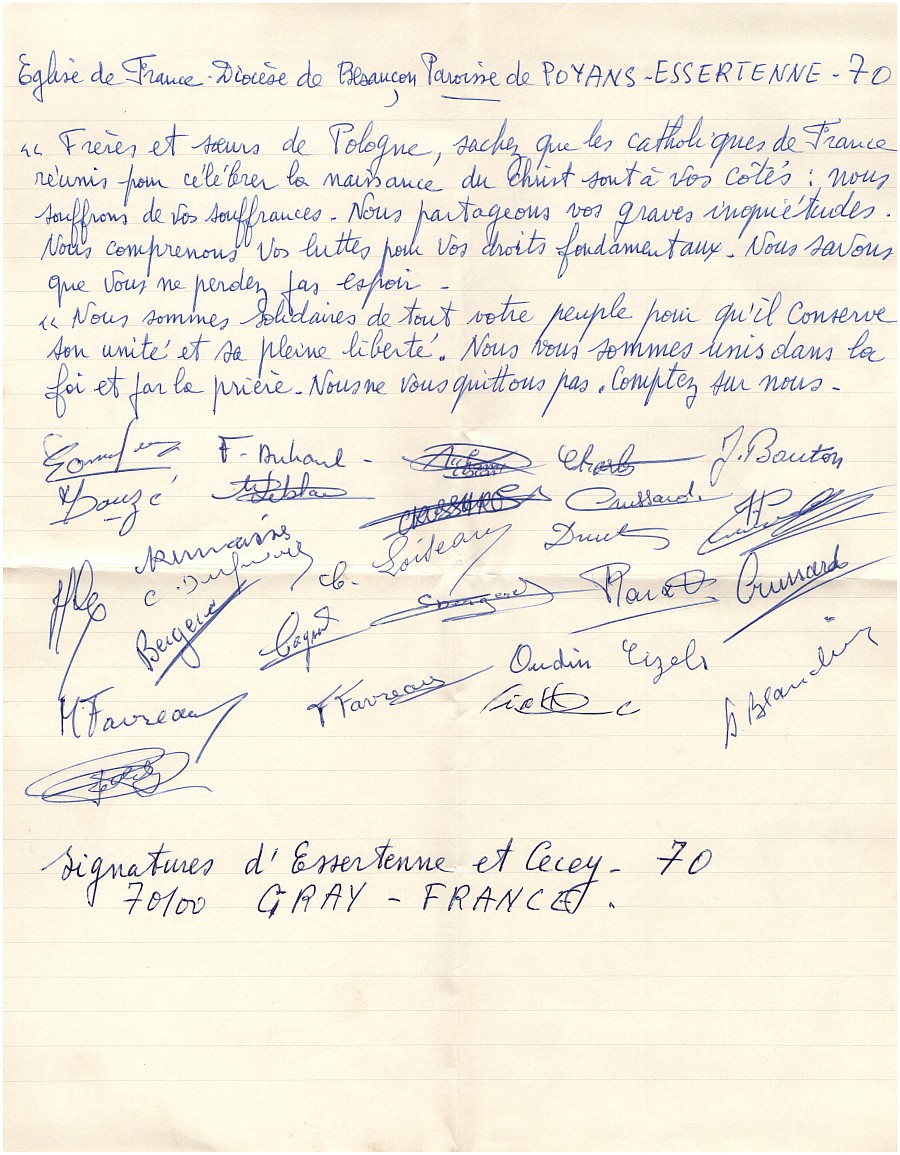 Eglise de France - Diocèse de Besançon Paroisse de POYANS - ESSERTENNE - 70
"Frères et sœurs de Pologne, sachez que les catholiques de France
réunis pour célébrer la naissance du Christ sont à vos côtés : nous
souffrons de vos souffrances - Nous partageons vos graves inquiétudes.
Nous comprenons vos luttes pour vos droits fondamentaux. Nous savons
que vous ne perdez pas espoir -
"Nous sommes solidaires de tout votre peuple pour qu'il conserve
son unité et sa pleine liberté. Nous vous sommes unis dans la
foi et par la prière. Nous ne vous quittons pas. Comptez sur nous -
J. Bouton
Douzé Crussard
Loiseau
Bergeret Crussard
Oudin Gizele
M Favreau F Favreau
Signatures d'Essertenne et Cecey - 70
70100 GRAY - FRANCE.